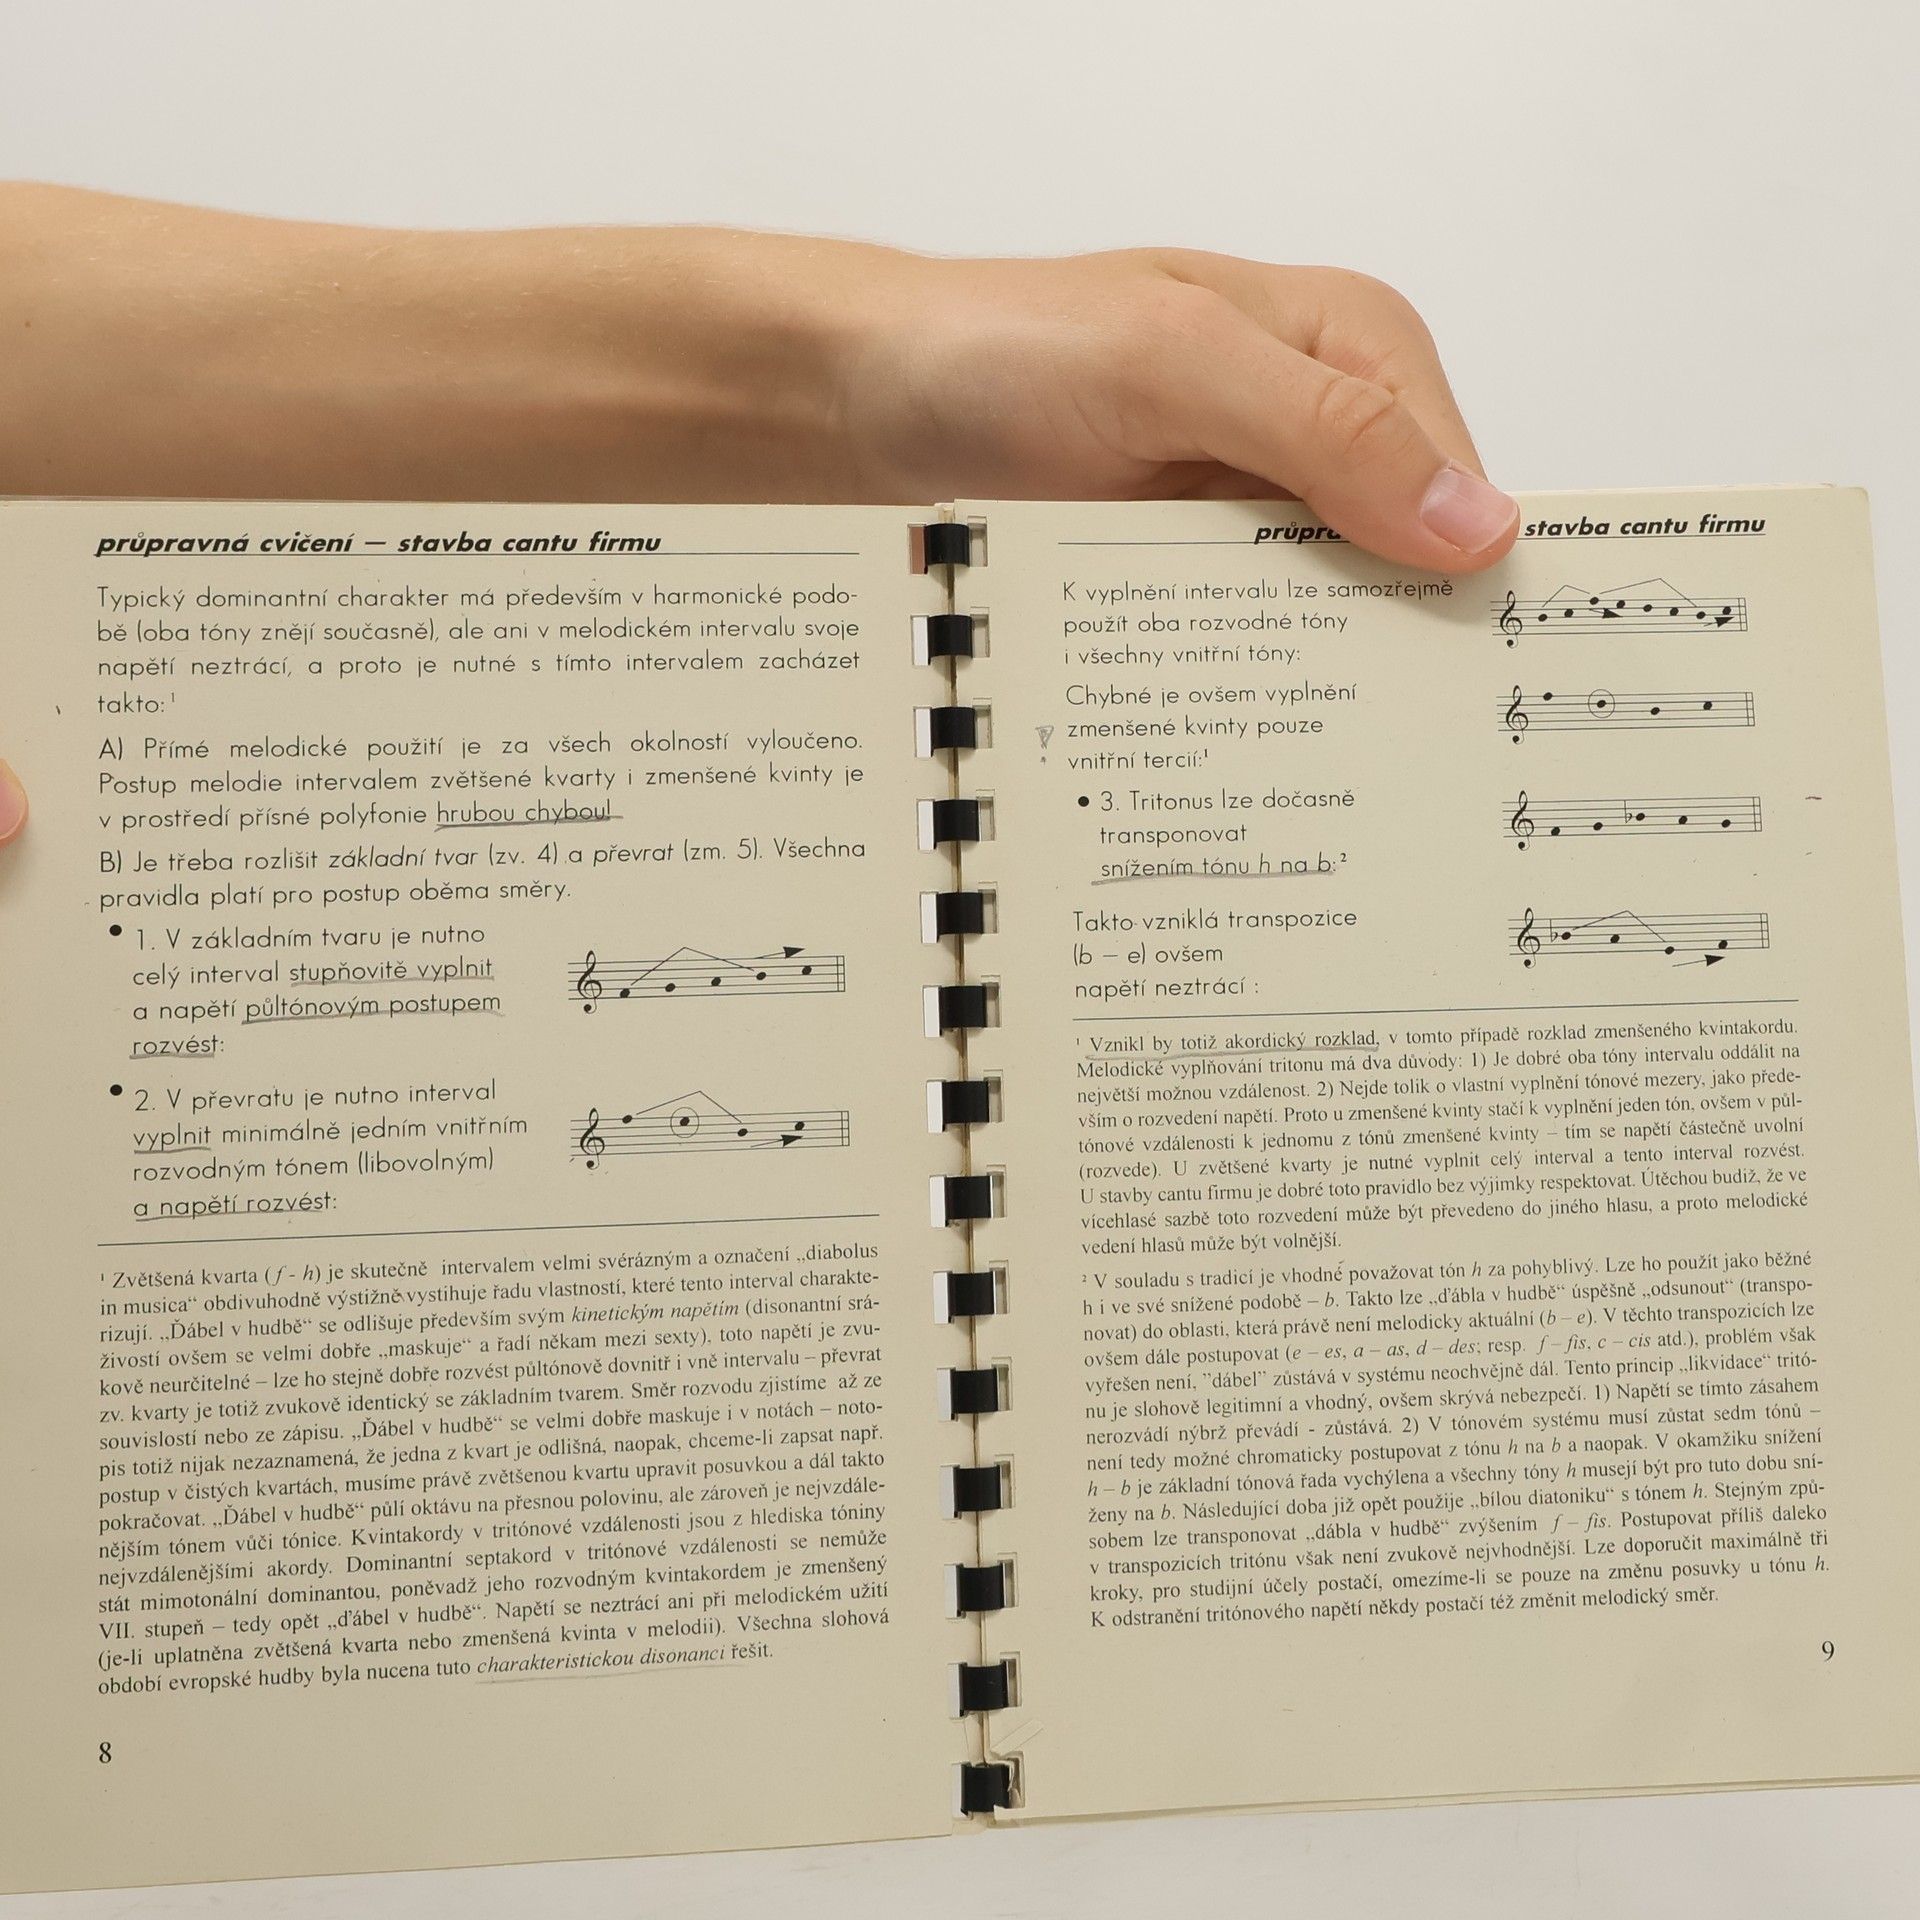 průpravná cvičení — stavba cantu firmu
Typický dominantní charakter má především v harmonické podo-
bě (oba tóny znějí současně), ale ani v melodickém intervalu svoje
napětí neztrácí, a proto je nutné s tímto intervalem zacházet
takto: ¹
A) Přímé melodické použití je za všech okolností vyloučeno.
Postup melodie intervalem zvětšené kvarty i zmenšené kvinty je
v prostředí přísné polyfonie hrubou chybou!
B) Je třeba rozlišit základní tvar (zv. 4) a převrat (zm. 5). Všechna
pravidla platí pro postup oběma směry.
• 1. V základním tvaru je nutno
celý interval stupňovitě vyplnit
a napětí půltónovým postupem
rozvést:
• 2. V převratu je nutno interval
vyplnit minimálně jedním vnitřním
rozvodným tónem (libovolným)
a napětí rozvést:
¹ Zvětšená kvarta (f - h) je skutečně intervalem velmi svérázným a označení „diabolus
in musica“ obdivuhodně výstižně vystihuje řadu vlastností, které tento interval charakte-
rizují. „Ďábel v hudbě“ se odlišuje především svým kinetickým napětím (disonantní srá-
živostí ovšem se velmi dobře „maskuje“ a řadí někam mezi sexty), toto napětí je zvu-
kově neurčitelné – lze ho stejně dobře rozvést půltónově dovnitř i vně intervalu – převrat
zv. kvarty je totiž zvukově identický se základním tvarem. Směr rozvodu zjistíme až ze
souvislostí nebo ze zápisu. „Ďábel v hudbě“ se velmi dobře maskuje i v notách – noto-
pis totiž nijak nezaznamená, že jedna z kvart je odlišná, naopak, chceme-li zapsat např.
postup v čistých kvartách, musíme právě zvětšenou kvartu upravit posuvkou a dál takto
pokračovat. „Ďábel v hudbě“ půlí oktávu na přesnou polovinu, ale zároveň je nejvzdále-
nějším tónem vůči tónice. Kvintakordy v tritónové vzdálenosti jsou z hlediska tóniny
nejvzdálenějšími akordy. Dominantní septakord v tritónové vzdálenosti se nemůže
stát mimotonální dominantou, poněvadž jeho rozvodným kvintakordem je zmenšený
VII. stupeň – tedy opět „ďábel v hudbě“. Napětí se neztrácí ani při melodickém užití
(je-li uplatněna zvětšená kvarta nebo zmenšená kvinta v melodii). Všechna slohová
období evropské hudby byla nucena tuto charakteristickou disonanci řešit.
8
stavba cantu firmu
K vyplnění intervalu lze samozřejmě
použít oba rozvodné tóny
i všechny vnitřní tóny:
Chybné je ovšem vyplnění
zmenšené kvinty pouze
vnitřní tercií:¹
• 3. Tritonus lze dočasně
transponovat
snížením tónu h na b:²
Takto vzniklá transpozice
(b – e) ovšem
napětí neztrácí :
¹ Vznikl by totiž akordický rozklad, v tomto případě rozklad zmenšeného kvintakordu.
Melodické vyplňování tritonu má dva důvody: 1) Je dobré oba tóny intervalu oddálit na
největší možnou vzdálenost. 2) Nejde tolik o vlastní vyplnění tónové mezery, jako přede-
vším o rozvedení napětí. Proto u zmenšené kvinty stačí k vyplnění jeden tón, ovšem v půl-
tónové vzdálenosti k jednomu z tónů zmenšené kvinty – tím se napětí částečně uvolní
(rozvede). U zvětšené kvarty je nutné vyplnit celý interval a tento interval rozvést.
U stavby cantu firmu je dobré toto pravidlo bez výjimky respektovat. Útěchou budiž, že ve
vícehlasé sazbě toto rozvedení může být převedeno do jiného hlasu, a proto melodické
vedení hlasů může být volnější.
² V souladu s tradicí je vhodné považovat tón h za pohyblivý. Lze ho použít jako běžné
h i ve své snížené podobě – b. Takto lze „ďábla v hudbě“ úspěšně „odsunout“ (transpo-
novat) do oblasti, která právě není melodicky aktuální (b – e). V těchto transpozicích lze
ovšem dále postupovat (e – es, a – as, d – des; resp. f – fis, c – cis atd.), problém však
vyřešen není, "dábel" zůstává v systému neochvějně dál. Tento princip „likvidace“ tritó-
nu je slohově legitimní a vhodný, ovšem skrývá nebezpečí. 1) Napětí se tímto zásahem
nerozvádí nýbrž převádí - zůstává. 2) V tónovém systému musí zůstat sedm tónů –
není tedy možné chromaticky postupovat z tónu h na b a naopak. V okamžiku snížení
h – b je základní tónová řada vychýlena a všechny tóny h musejí být pro tuto dobu sní-
ženy na b. Následující doba již opět použije „bílou diatoniku“ s tónem h. Stejným způ-
sobem lze transponovat „dábla v hudbě“ zvýšením f – fis. Postupovat příliš daleko
v transpozicích tritónu však není zvukově nejvhodnější. Lze doporučit maximálně tři
kroky, pro studijní účely postačí, omezíme-li se pouze na změnu posuvky u tónu h.
K odstranění tritónového napětí někdy postačí též změnit melodický směr.
9